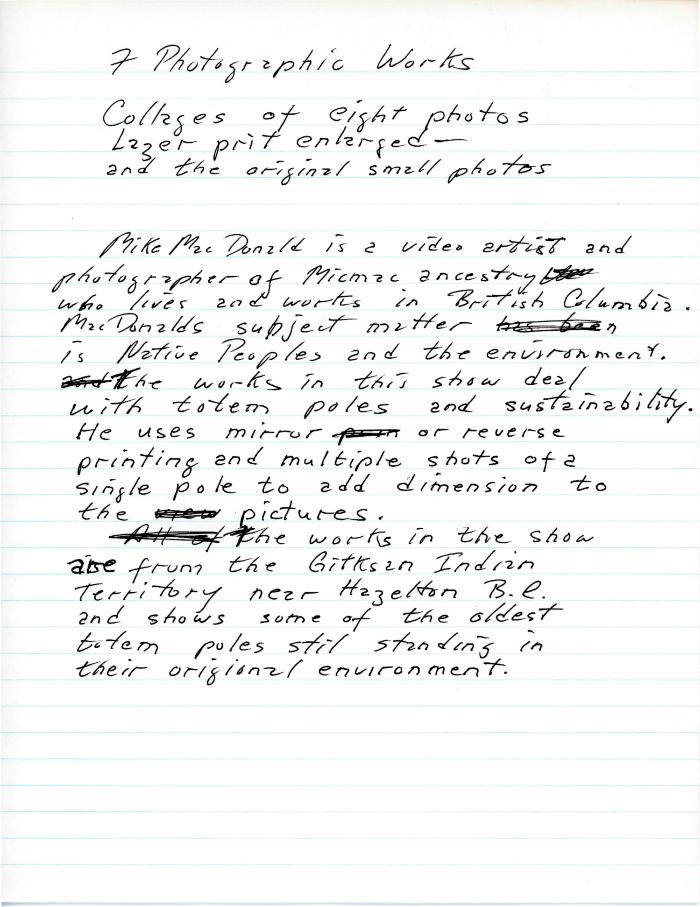 7 Photographic Works
Collages of eight photos
Lazer prit enlarged—
and the original small photos
Mike Mac Donald is a video artist and
photographer of Micmac ancestry
who lives and works in British Columbia.
MacDonalds subject matter has been
is Native Peoples and the environment.
and The works in this show deal
with totem poles and sustainability.
He uses mirror or reverse
printing and multiple shots of a
single pole to add dimension to
the view pictures.
All of The works in the show
are from the Gitksan Indian
Territory near Hazelton B.C.
and shows some of the oldest
totem poles stil standing in
their origional environment.